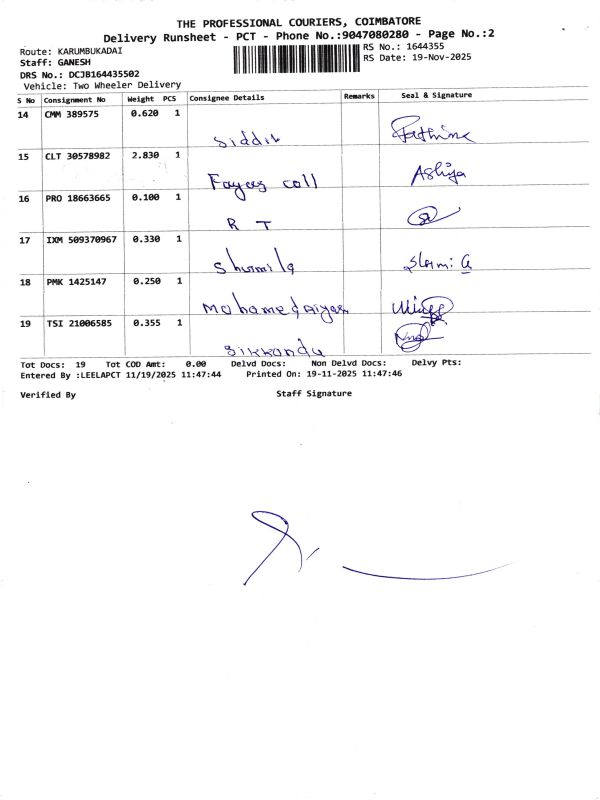 THE PROFESSIONAL COURIERS, COIMBATORE
Delivery Runsheet - PCT - Phone No.:9047080280 - Page No.:2
Route: KARUMBUKADAI
RS No.: 1644355
Staff: GANESH
RS Date: 19-Nov-2025
DRS No.: DCJB164435502
Vehicle: Two Wheeler Delivery
S No Consignment No Weight PCS Consignee Details Remarks Seal & Signature
14 CMM 389575 0.620 1
Siddik Fathima
15 CLT 30578982 2.830 1
Fayas coll Ashiya
16 PRO 18663665 0.100 1
R T
17 IXM 509370967 0.330 1
Shurmila
18 PMK 1425147 0.250 1
19 TSI 21006585 0.355 1
Sikkandu
Tot Docs: 19 Tot COD Amt: 0.00 Delvd Docs: Non Delvd Docs: Delvy Pts:
Entered By :LEELAPCT 11/19/2025 11:47:44 Printed On: 19-11-2025 11:47:46
Verified By Staff Signature